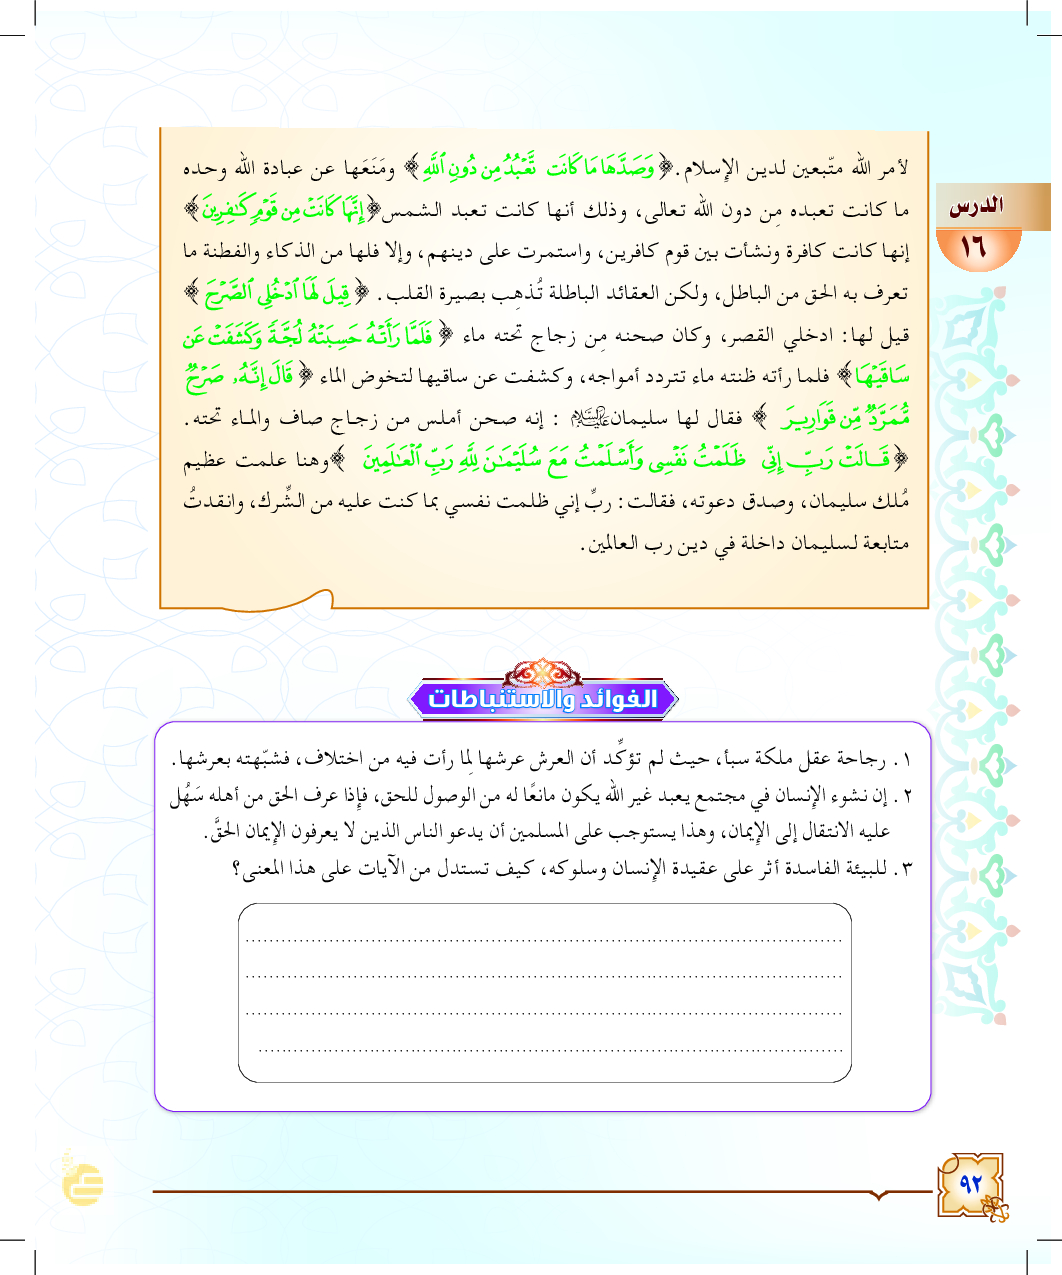 لأمر الله متّبعين لدين الإسلام. ﴿ وَصَدَّهَا مَا كَانَت تَّعْبُدُ مِن دُونِ ٱللَّهِ ﴾ ومَنَعَها عن عبادة الله وحده
ما كانت تعبده مِن دون الله تعالى، وذلك أنها كانت تعبد الشمس ﴿ إِنَّهَا كَانَتْ مِن قَوْمٍ كَٰفِرِينَ ﴾
إنها كانت كافرة ونشأت بين قوم كافرين، واستمرت على دينهم، وإلا فلها من الذكاء والفطنة ما
تعرف به الحق من الباطل، ولكن العقائد الباطلة تُذهِب بصيرة القلب. ﴿ قِيلَ لَهَا ٱدْخُلِي ٱلصَّرْحَ ﴾
قيل لها: ادخلي القصر، وكان صحنه مِن زجاج تحته ماء ﴿ فَلَمَّا رَأَتْهُ حَسِبَتْهُ لُجَّةً وَكَشَفَتْ عَن
سَاقَيْهَا ﴾ فلما رأته ظنته ماء تتردد أمواجه، وكشفت عن ساقيها لتخوض الماء ﴿ قَالَ إِنَّهُۥ صَرْحٌ
مُّمَرَّدٌ مِّن قَوَارِيرَ ﴾ فقال لها سليمان عليه السلام : إنه صحن أملس من زجاج صاف والماء تحته.
﴿ قَالَتْ رَبِّ إِنِّي ظَلَمْتُ نَفْسِي وَأَسْلَمْتُ مَعَ سُلَيْمَٰنَ لِلَّهِ رَبِّ ٱلْعَٰلَمِينَ ﴾ وهنا علمت عظيم
مُلك سليمان، وصدق دعوته، فقالت: ربِّ إني ظلمت نفسي بما كنت عليه من الشِّرك، وانقدتُ
متابعة لسليمان داخلة في دين رب العالمين.
الدرس
١٦
الفوائد والاستنباطات
١. رجاحة عقل ملكة سبأ، حيث لم تؤكِّد أن العرش عرشها لِما رأت فيه من اختلاف، فشبّهته بعرشها.
٢. إن نشوء الإنسان في مجتمع يعبد غير الله يكون مانعًا له من الوصول للحق، فإذا عرف الحق من أهله سَهُل
عليه الانتقال إلى الإيمان، وهذا يستوجب على المسلمين أن يدعو الناس الذين لا يعرفون الإيمان الحقَّ.
٣. للبيئة الفاسدة أثر على عقيدة الإنسان وسلوكه، كيف تستدل من الآيات على هذا المعنى؟
٩٢